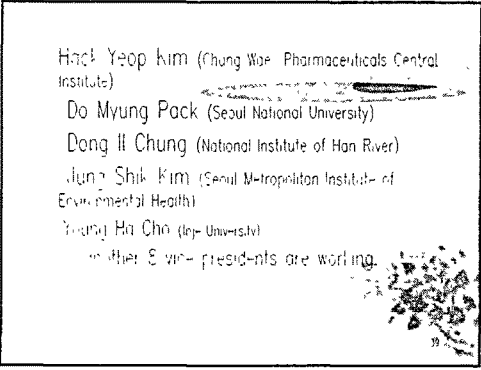 Hack Yeop Kim (Chung Wae Pharmaceuticals Central
Institute)
Do Myung Pack (Seoul National University)
Dong Il Chung (National Institute of Han River)
Jung Shik Kim (Seoul Metropolitan Institute of
Environmental Health)
Young Ha Cho (Inje University)
other 8 vice presidents are working.